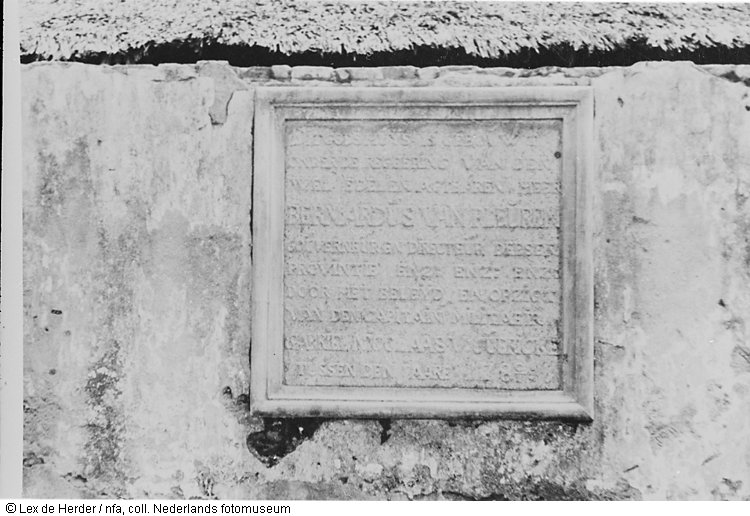 ONDER DE REGEERING VAN DEN
WEL EDELEN AGTBAREN HEER
BERNARDUS VAN PLEUREN
GOUVERNEUR EN DIRECTEUR DEESER
PROVINTIE ENZT ENZT ENZT
DOOR HET BELEYD EN OPZIGT
VAN DEN CAPITAIN MILITAER
GABRIEL NICOLAAS
TUSSEN DEN JAARE
© Lex de Herder / nfa, coll. Nederlands fotomuseum